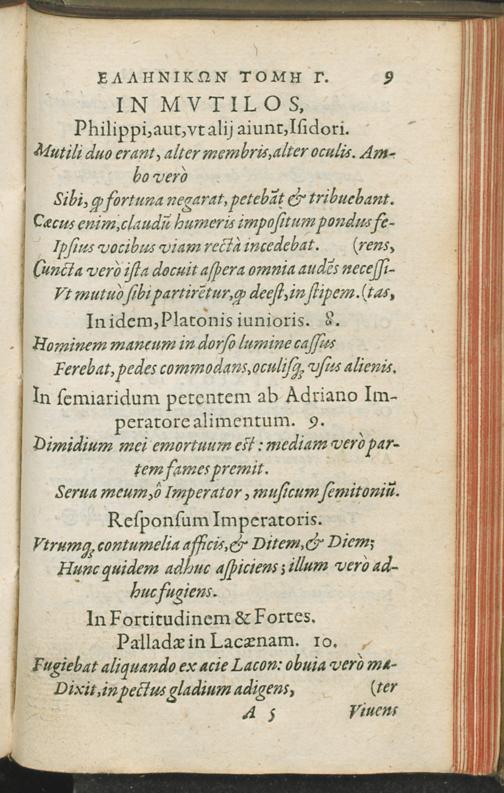 ΕΛΛΗΝΙΚΩΝ ΤΟΜΗ Γ. 9
IN MVTILOS,
Philippi, aut, vt alij aiunt, Isidori.
Mutili duo erant, alter membris, alter oculis. Am-
bo verò
Sibi, ꝙ fortuna negarat, petebāt & tribuebant.
Cæcus enim, claudū humeris impositum pondus fe-
Ipsius vocibus viam rectà incedebat. (rens,
Cuncta verò ista docuit aspera omnia audēs necessi-
Vt mutuò sibi partirētur, ꝙ deest, in stipem. (tas,
In idem, Platonis iunioris. 8.
Hominem mancum in dorso lumine cassus
Ferebat, pedes commodans, oculisq; vsus alienis.
In semiaridum petentem ab Adriano Im-
peratore alimentum. 9.
Dimidium mei emortuum est: mediam verò par-
tem fames premit.
Serua meum, ô Imperator, musicum semitoniū.
Responsum Imperatoris.
Vtrumq; contumelia afficis, & Ditem, & Diem;
Hunc quidem adhuc aspiciens; illum verò ad-
huc fugiens.
In Fortitudinem & Fortes.
Palladæ in Lacænam. 10.
Fugiebat aliquando ex acie Lacon: obuia verò ma-
Dixit, in pectus gladium adigens, (ter
A 5 Viuens